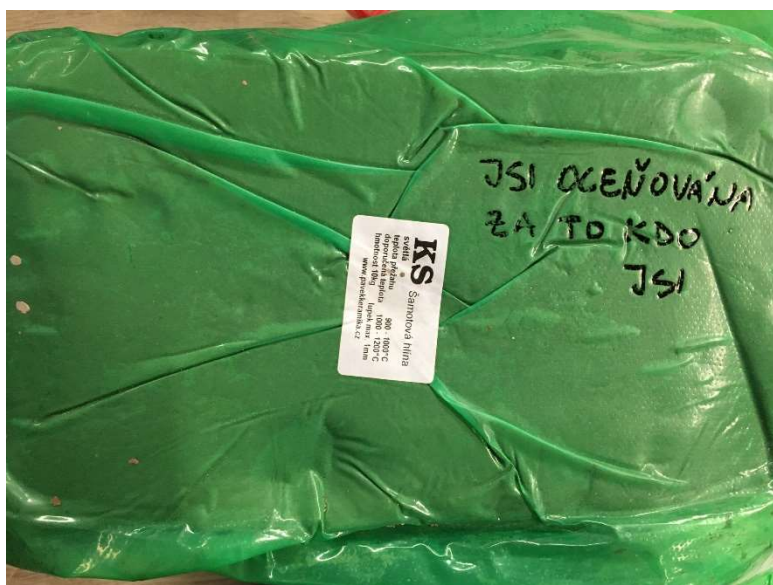 JSI OCEŇOVÁNA
ZA TO KDO
JSI
KS Šamotová hlína
světlá
teplota přežahu 900 - 1000°C
doporučená teplota 1000 - 1200°C
hmotnost 10kg lupek max. 1mm
www.pavekkeramika.cz